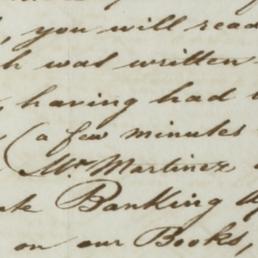 you will read
was written
having had
(a few minutes
Mr. Martinez
Banking
on our Books,